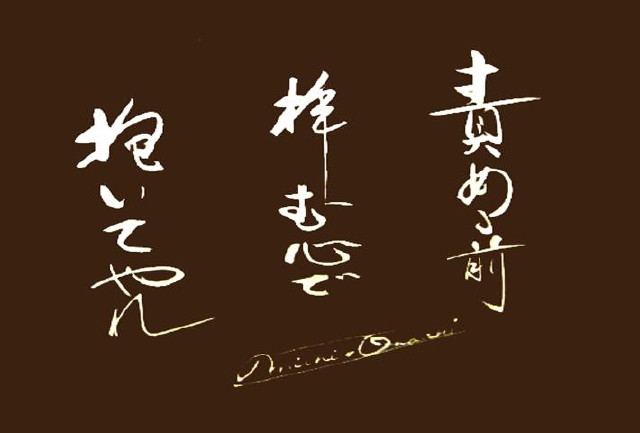 責める前
拝む心で
抱いてやれ